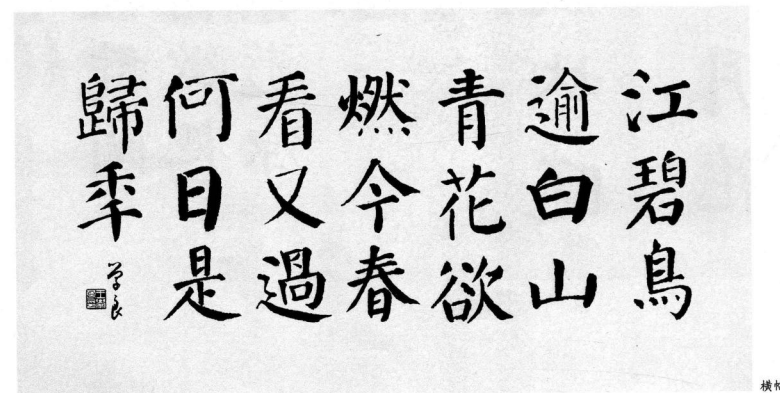 江碧鳥
逾白山
青花欲
燃今春
看又過
何日是
歸年
學良
横